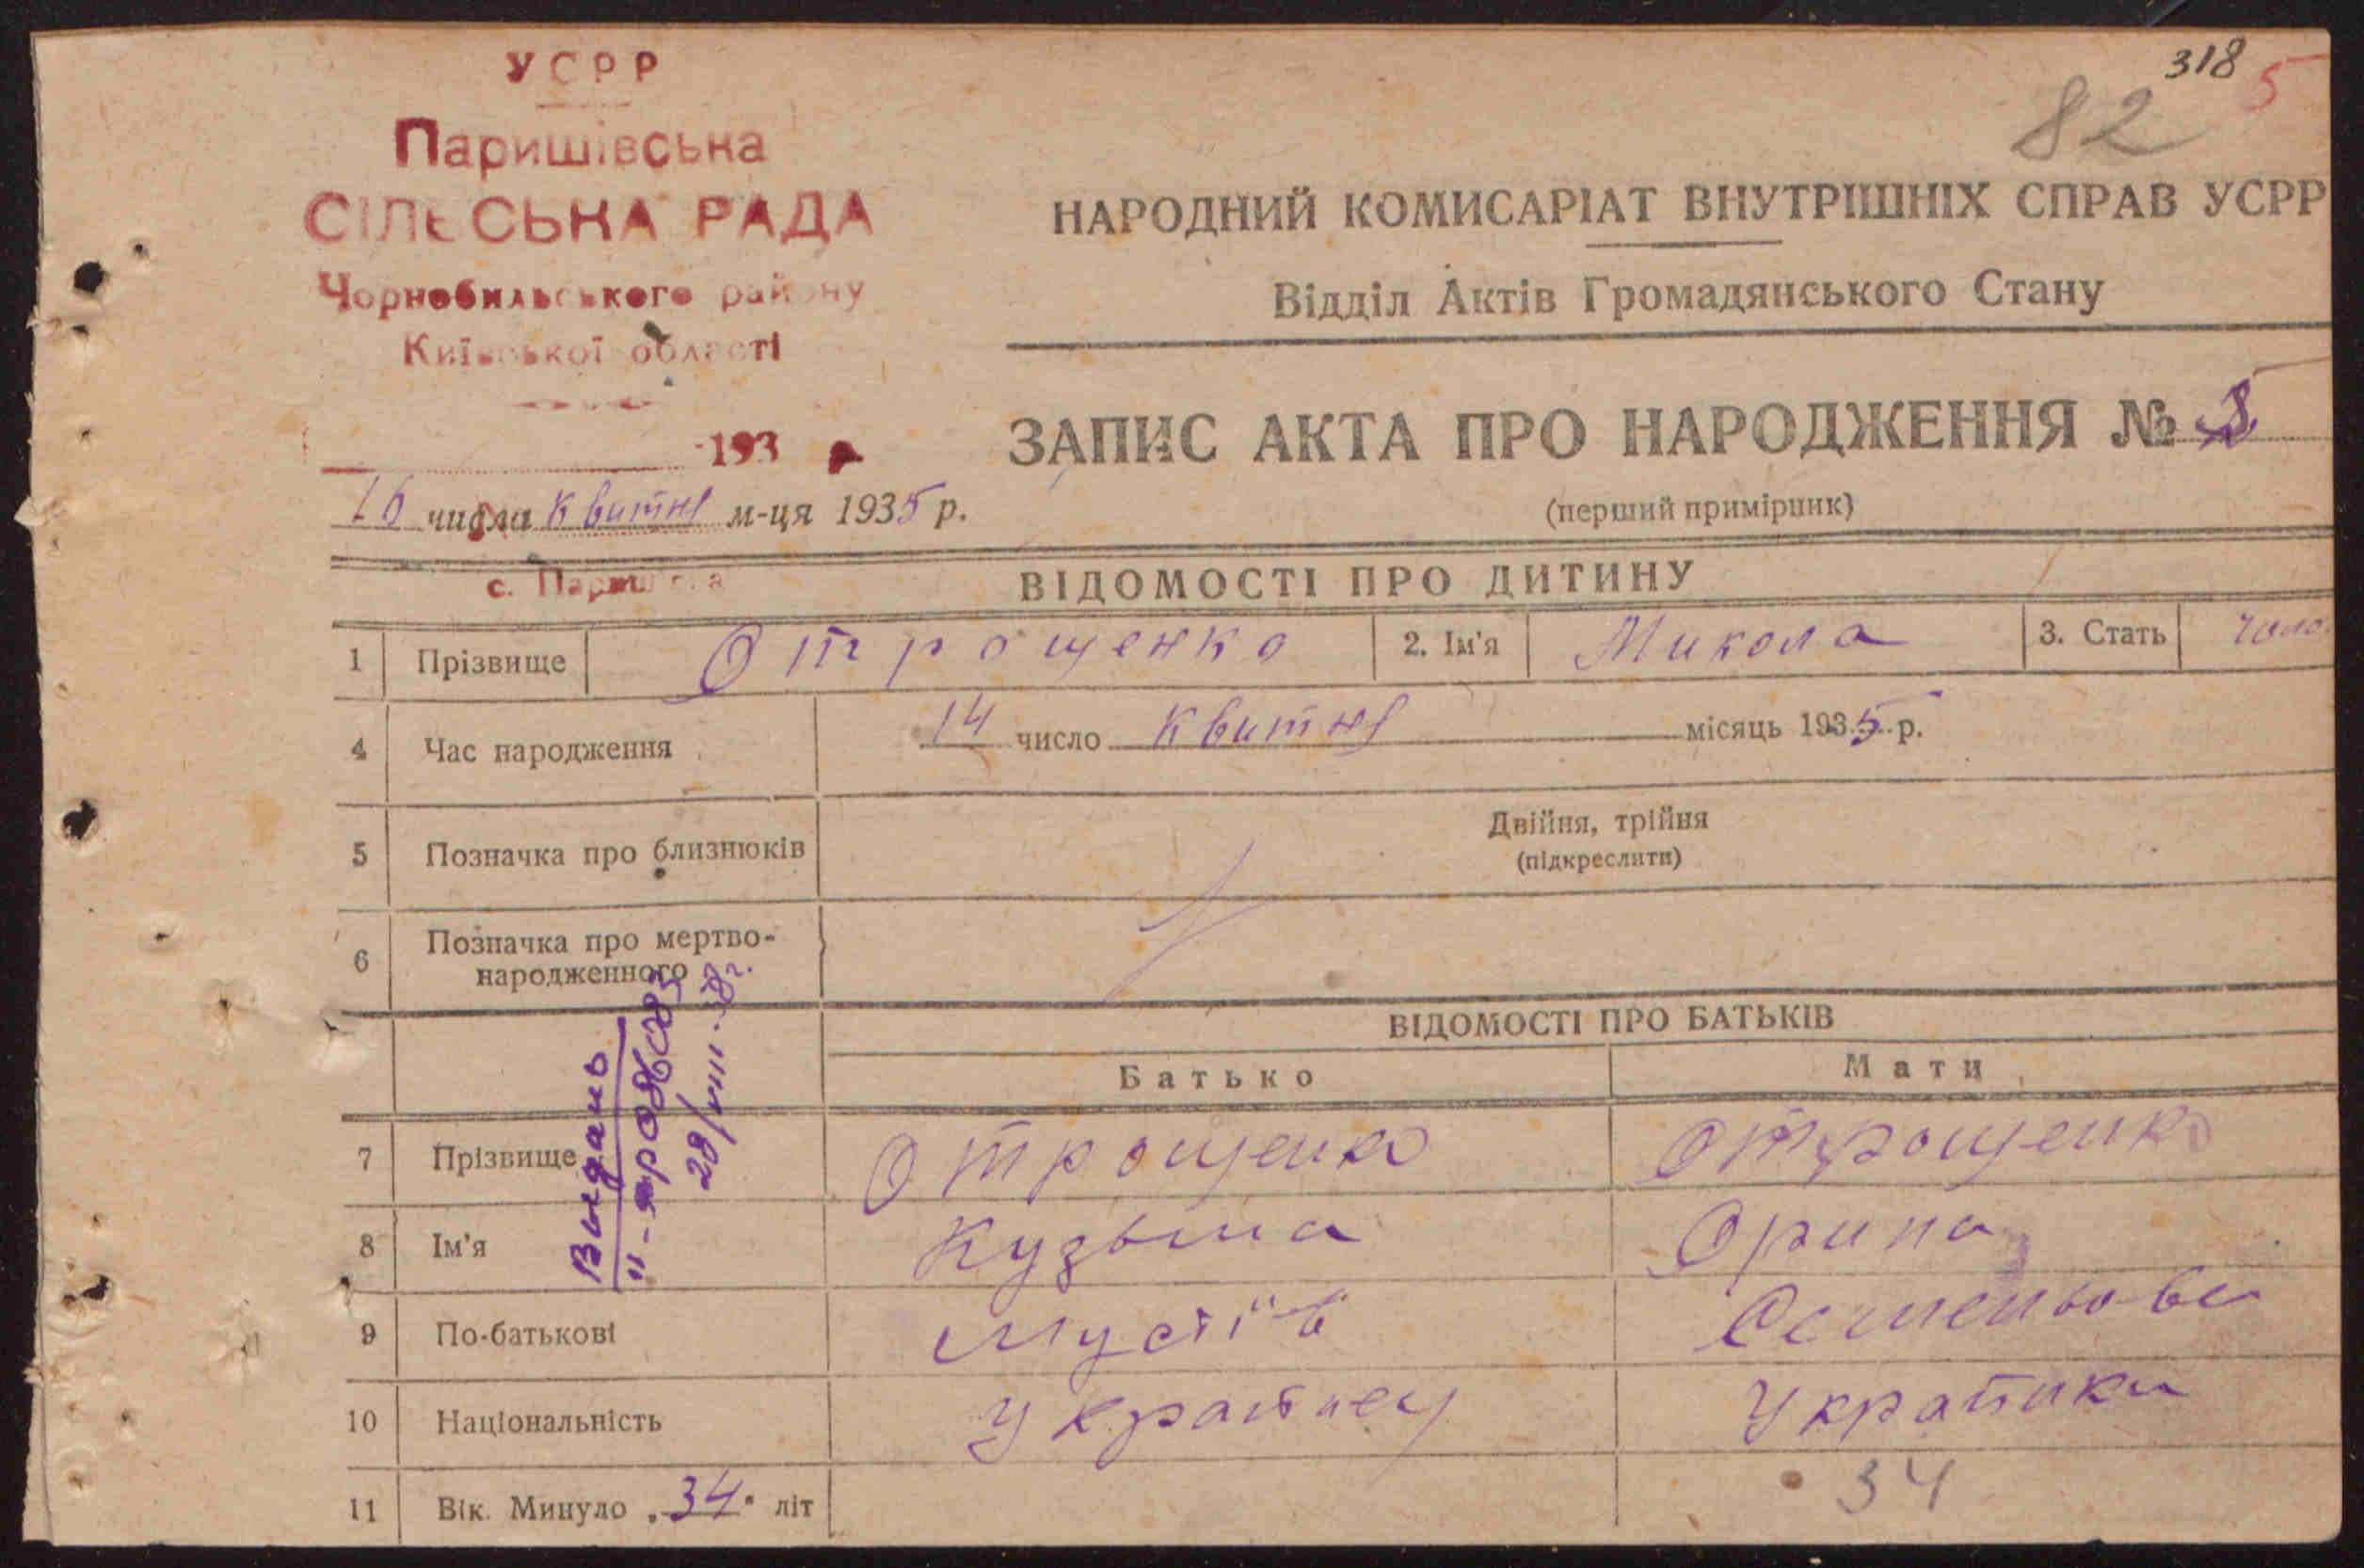 318 5
82
УСРР
Паришівська
СІЛЬСЬКА РАДА
Чорнобильського району
Київської області
193
16 числа квитня м-ця 1935 р.
с. Паришів
НАРОДНИЙ КОМИСАРІАТ ВНУТРІШНІХ СПРАВ УСРР
Відділ Актів Громадянського Стану
ЗАПИС АКТА ПРО НАРОДЖЕННЯ №
(перший примірник)
ВІДОМОСТІ ПРО ДИТИНУ
1 Прізвище Отрощенко 2. Ім'я Микола 3. Стать чоло.
4 Час народження 14 число квитня місяць 1935 р.
5 Позначка про близнюків Двійня, трійня
(підкреслити)
6 Позначка про мертво-
народженного
ВІДОМОСТІ ПРО БАТЬКІВ
Батько Мати
7 Прізвище Отрощенко Отрощенко
8 Ім'я Кузьма Орина
9 По-батькові Мусіїв Семенова
10 Національність Українец Українка
11 Вік. Минуло „34" літ 34
Выдань
28/VIII-38г.